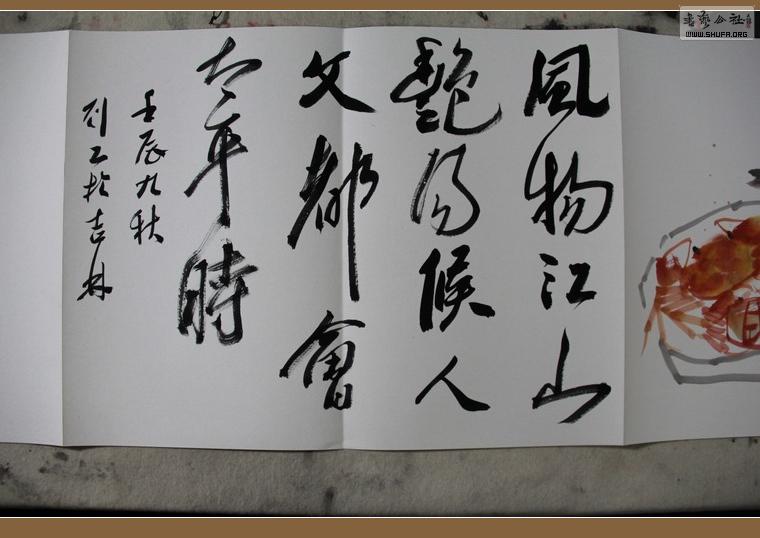 風物江山
艷陽候人
文都會
太平時
壬辰九秋
刘工於吉林
書艺公社
WWW.SHUFA.ORG